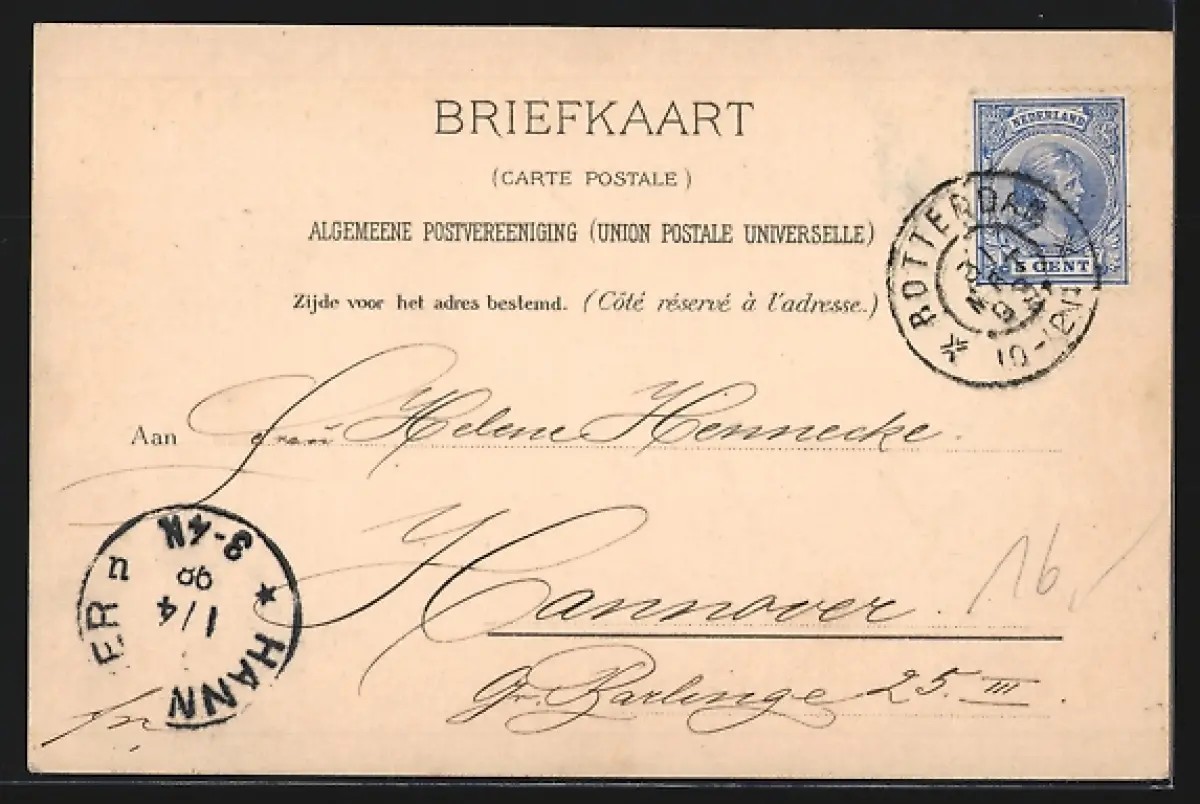 BRIEFKAART
(CARTE POSTALE)
ALGEMEENE POSTVEREENIGING (UNION POSTALE UNIVERSELLE)
Zijde voor het adres bestemd. (Côté réservé à l'adresse.)
NEDERLAND
5 CENT
ROTTERDAM
31
10-12V
Aan Frau Helene Hennecke.
Hannover.
Gr. Barlinge 25. III.
16
HANN ER n
1/4
3-4N